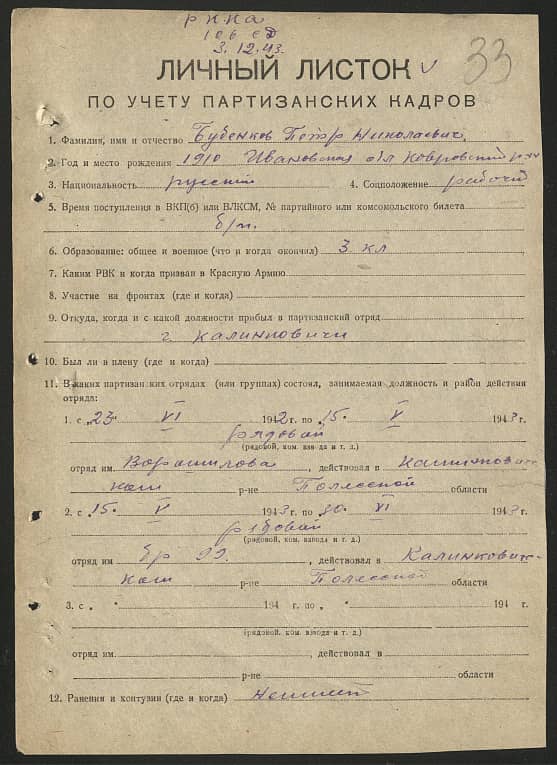 РККА
106 сд
3.12.43.
33
ЛИЧНЫЙ ЛИСТОК
ПО УЧЕТУ ПАРТИЗАНСКИХ КАДРОВ
1. Фамилия, имя и отчество Бубенков Петр Николаевич
2. Год и место рождения 1910 Ивановская обл Ковровский р-н
3. Национальность русский 4. Соцположение рабочий
5. Время поступления в ВКП(б) или ВЛКСМ, № партийного или комсомольского билета
б/п.
6. Образование: общее и военное (что и когда окончил) 3 кл
7. Каким РВК и когда призван в Красную Армию
8. Участие на фронтах (где и когда)
9. Откуда, когда и с какой должности прибыл в партизанский отряд
г. Калинковичи
10. Был ли в плену (где и когда)
11. В каких партизанских отрядах (или группах) состоял, занимаемая должность и район действия
отряда:
1. с 23. VI 1942 г. по 15. V 1943 г.
рядовой
(рядовой, ком. взвода и т. д.)
отряд им. Ворошилова, действовал в Калинкович-
ком р-не Полесской области
2. с 15. V 1943 г. по 30. VI 1943 г.
рядовой
(рядовой, ком. взвода и т. д.)
отряд им. бр 99., действовал в Калинкович-
ком р-не Полесской области
3. с . 194 г. по . 194 г.
(рядовой, ком. взвода и т. д.)
отряд им. , действовал в
р-не области
12. Ранения и контузии (где и когда)